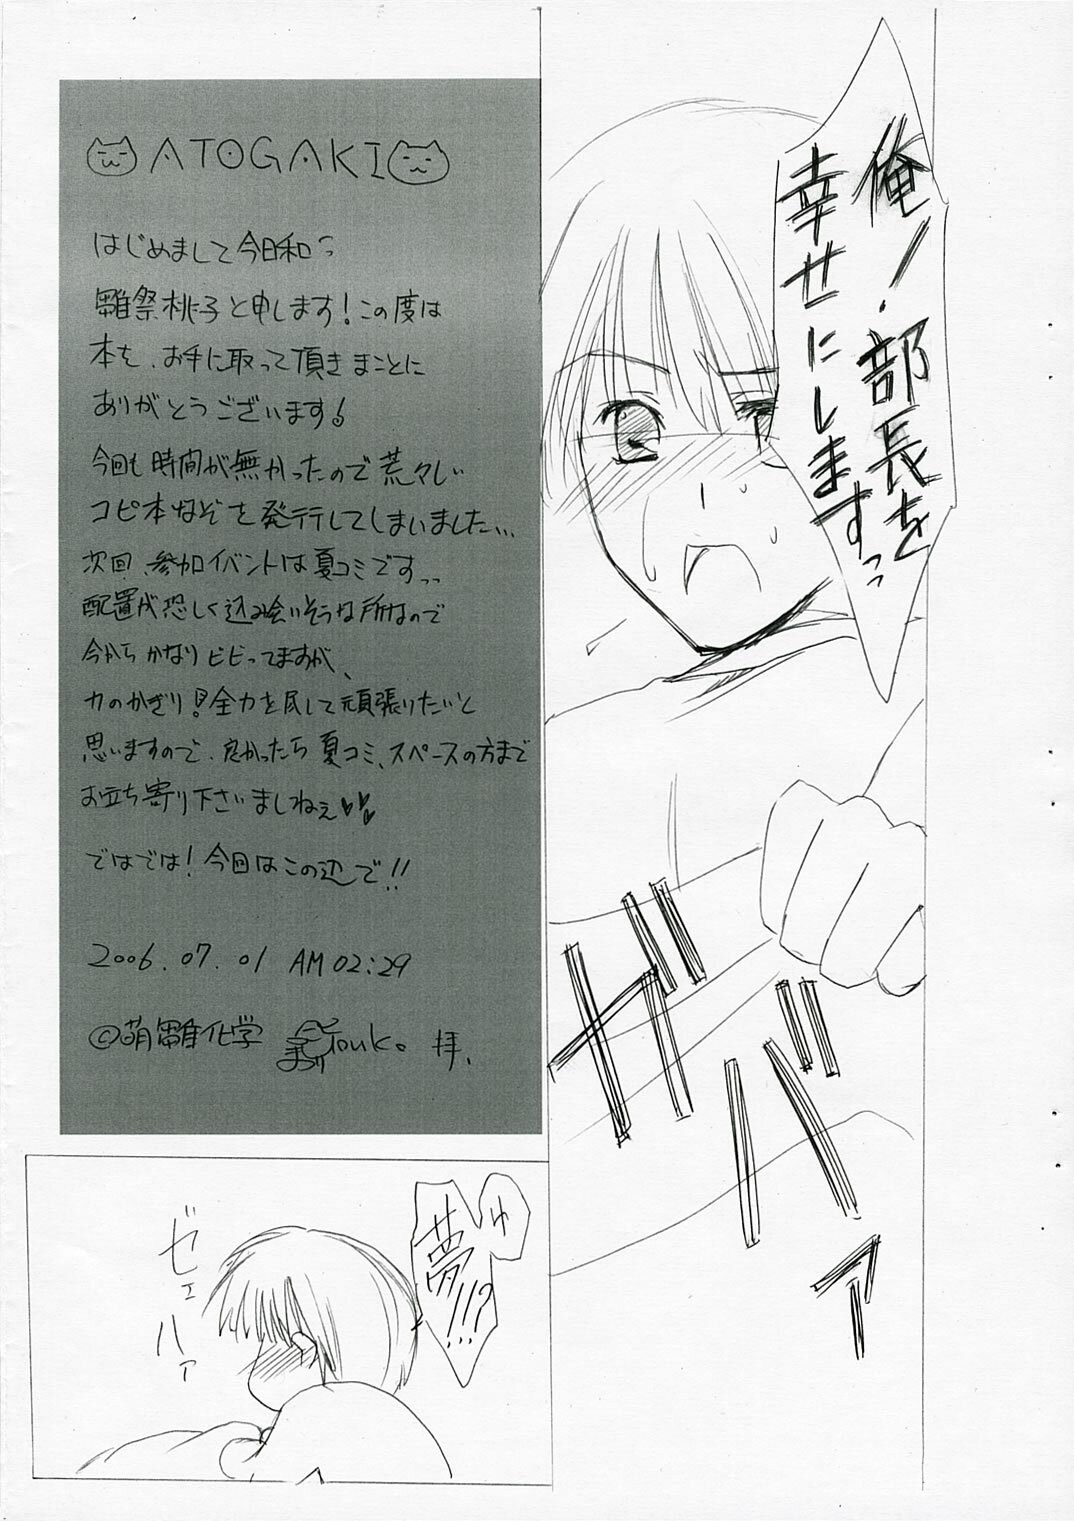 俺ノ・部長を
幸せにしますっ
ガバァ
ATOGAKI
はじめまして今日和っ
雛祭桃子と申します!この度は
本を、お手に取って頂きまことに
ありがとうございます!
今回も時間が無かったので荒々しい
コピ本なぞを発行してしまいました…
次回、参加イベントは夏コミですっっ
配置が恐しく込み会いそうな所なので
今からかなりビビってますが、
力のかぎり!全力を尽して頑張りたいと
思いますので、良かったら夏コミ、スペースの方まで
お立ち寄り下さいましねぇ♥♥
ではでは!今回はこの辺で!!
2006.07.01 AM02:29
©萌雛化学 Touko。拝、
ゆ
夢!!!?
ゼェ
ハァ